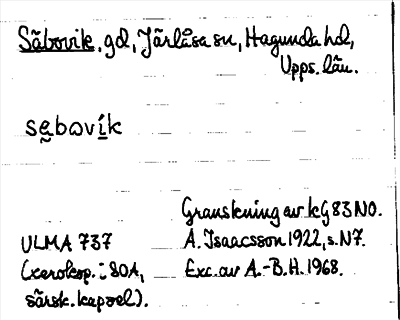 Säbovik, gd, Järlåsa sn, Hagunda hd,
Upps. län.
sẹbωvík
Granskning av kG 83 NO.
ULMA 737
A. Isaacsson 1922, s. N7.
(xerokop. i 80A,
Exc. av A.-B. H. 1968.
särsk. kapsel).